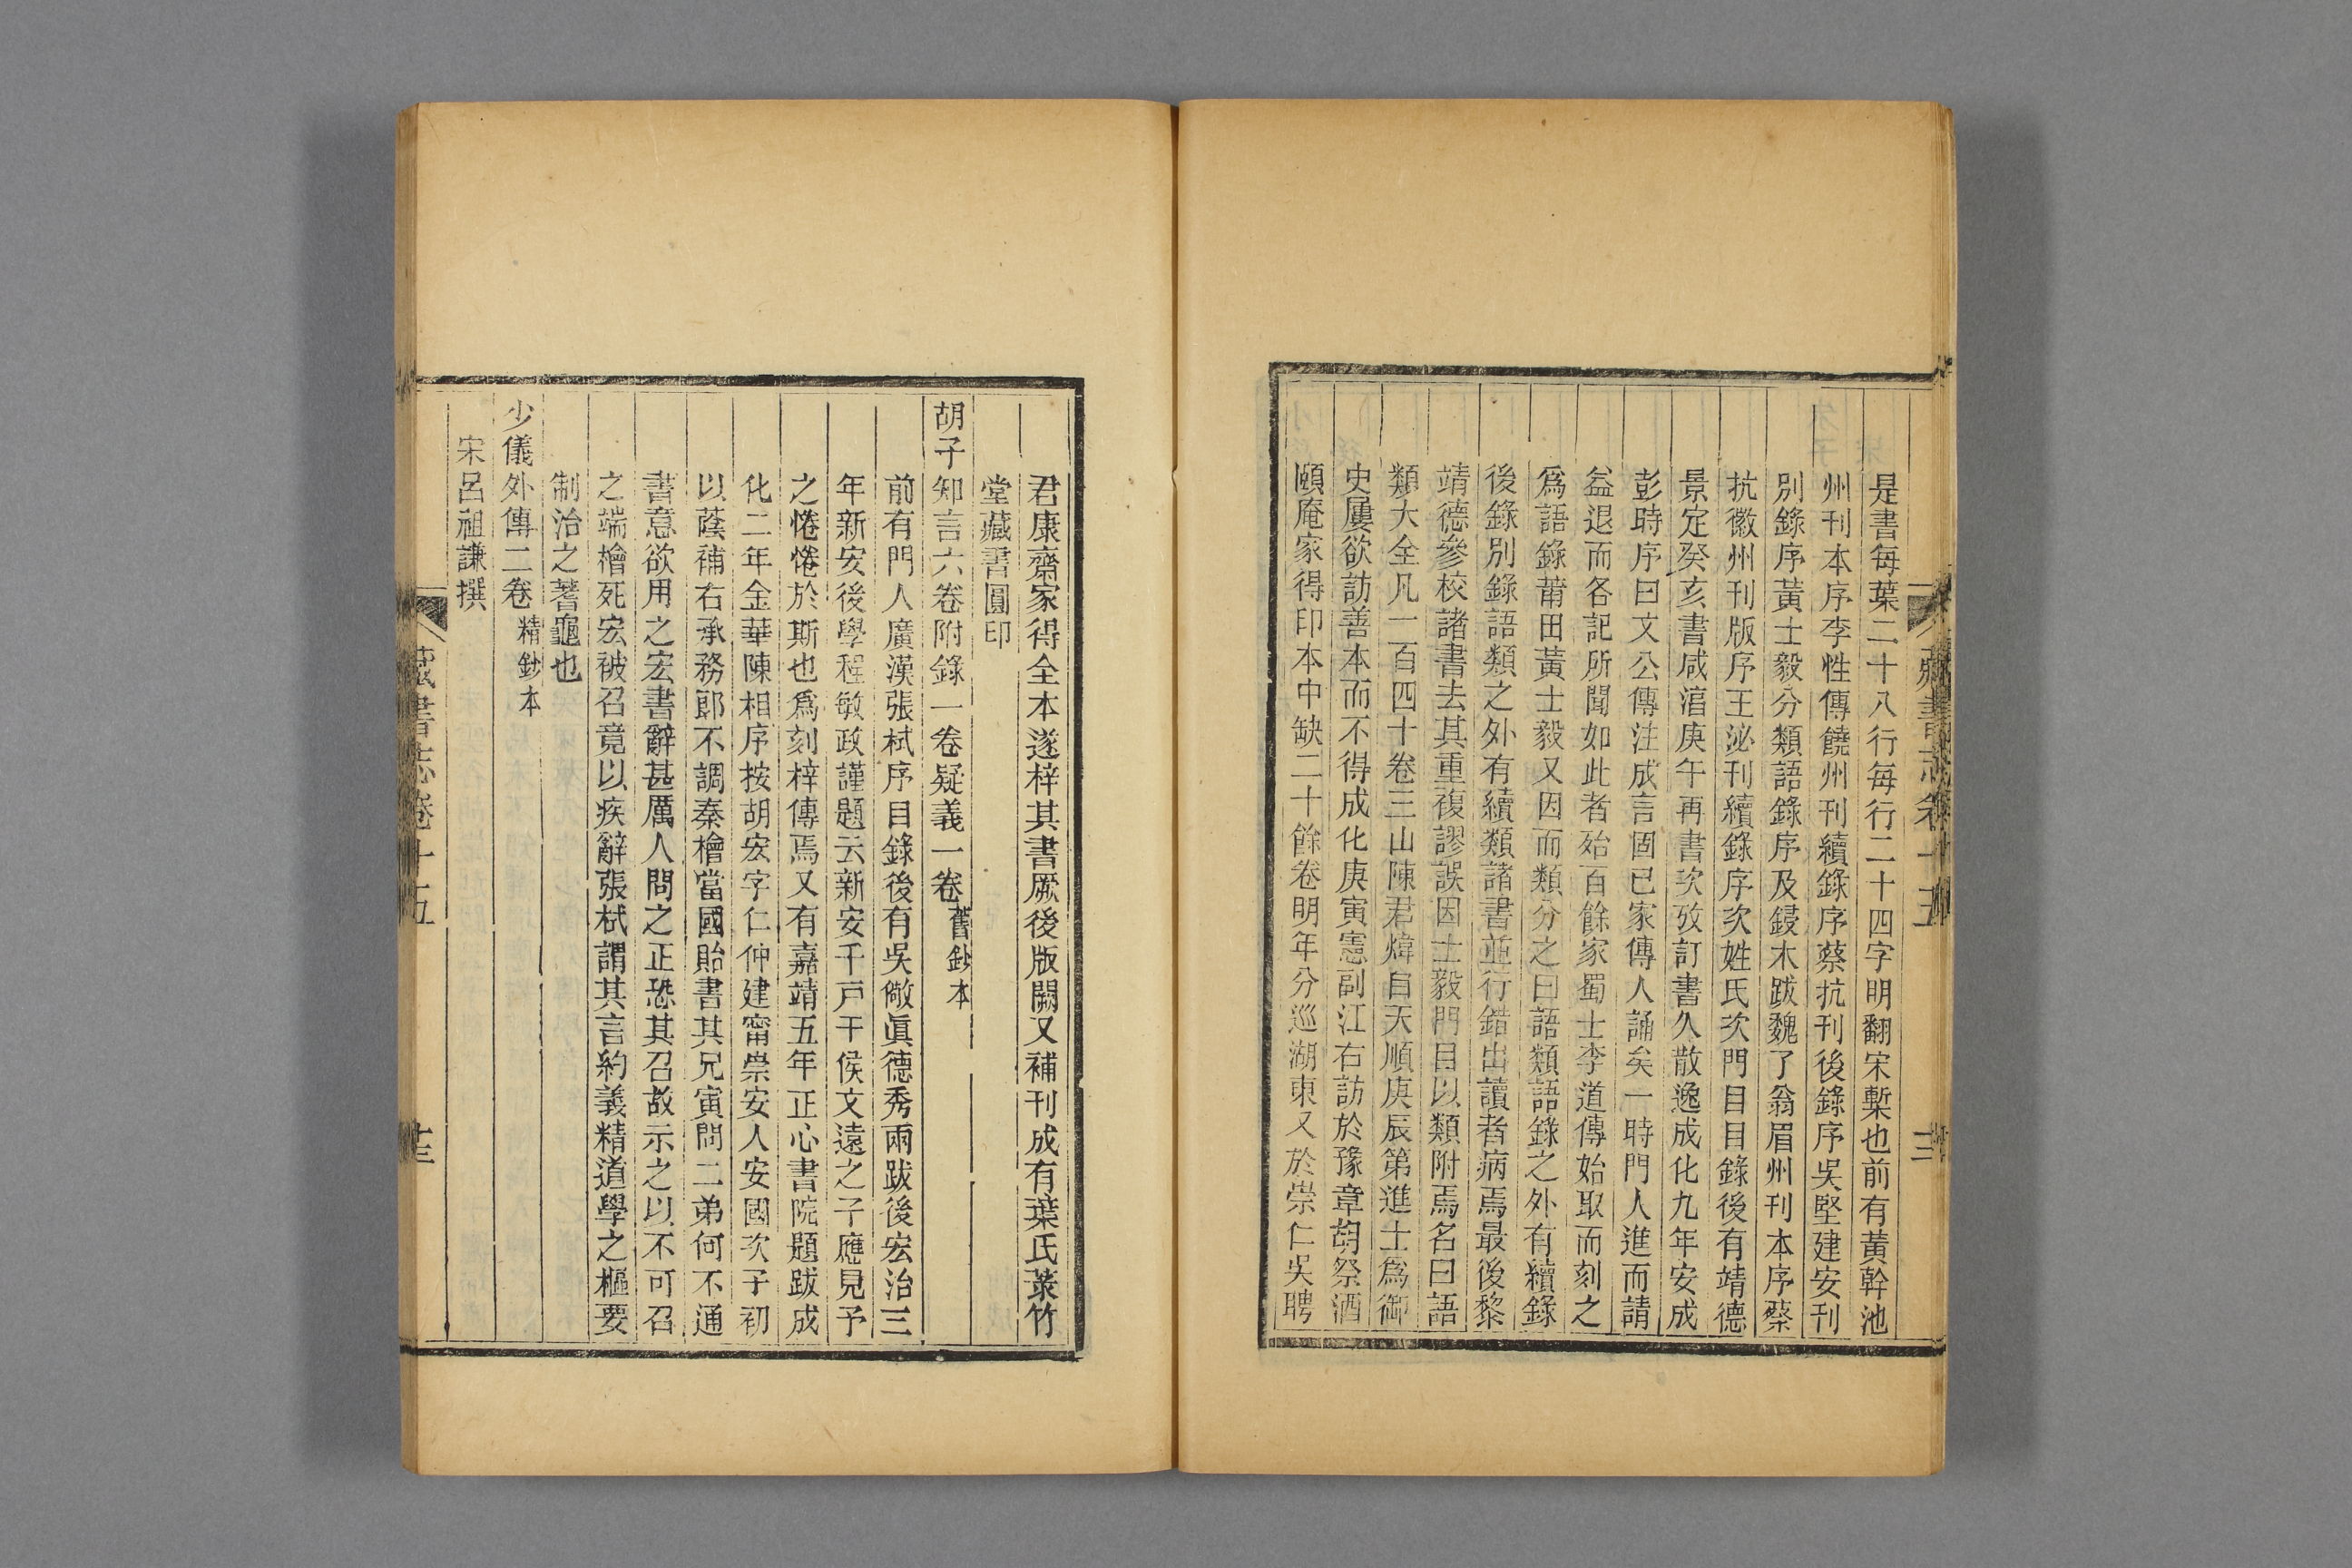 是書每葉二十八行每行二十四字明翻宋槧也前有黃幹池
州刊本序李性傳饒州刊續錄序蔡抗刊後錄序吳堅建安刊
別錄序黃士毅分類語錄序及鋟木跋魏了翁眉州刊本序蔡
抗徽州刊版序王泌刊續錄序次姓氏次門目目錄後有靖德
景定癸亥書咸淳庚午再書次攷訂書久散逸成化九年安成
彭時序曰文公傳注成言固已家傳人誦矣一時門人進而請
益退而各記所聞如此者殆百餘家蜀士李道傳始取而刻之
爲語錄莆田黃士毅又因而類分之曰語類語錄之外有續錄
後錄別錄語類之外有續類諸書並行錯出讀者病焉最後黎
靖德參校諸書去其重複謬誤因士毅門目以類附焉名曰語
類大全凡一百四十卷三山陳君煒自天順庚辰第進士爲御
史屢欲訪善本而不得成化庚寅憲副江右訪於豫章胡祭酒
頤庵家得印本中缺二十餘卷明年分巡湖東又於崇仁吳聘
君康齋家得全本遂梓其書厥後版闕又補刊成有葉氏菉竹
堂藏書圓印
胡子知言六卷附錄一卷疑義一卷 舊鈔本
前有門人廣漢張栻序目錄後有吳儆眞德秀兩跋後宏治三
年新安後學程敏政謹題云新安千戸于侯文遠之子應見予
之惓惓於斯也爲刻梓傳焉又有嘉靖五年正心書院題跋成
化二年金華陳相序按胡宏字仁仲建甯崇安人安國次子初
以蔭補右承務郎不調秦檜當國貽書其兄寅問二弟何不通
書意欲用之宏書辭甚厲人問之正恐其召故示之以不可召
之端檜死宏被召竟以疾辭張栻謂其言約義精道學之樞要
制治之蓍龜也
少儀外傳二卷 精鈔本
宋呂祖謙撰
藏書志卷十五